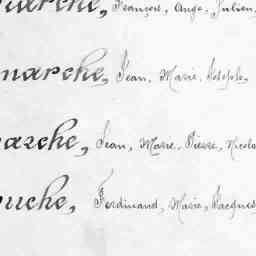 marche, François, Ange, Julien,
marche, Jean, Marie, Joseph,
marche, Jean, Marie, Pierre, Nicola
ouche, Ferdinand, Marie, Jacques